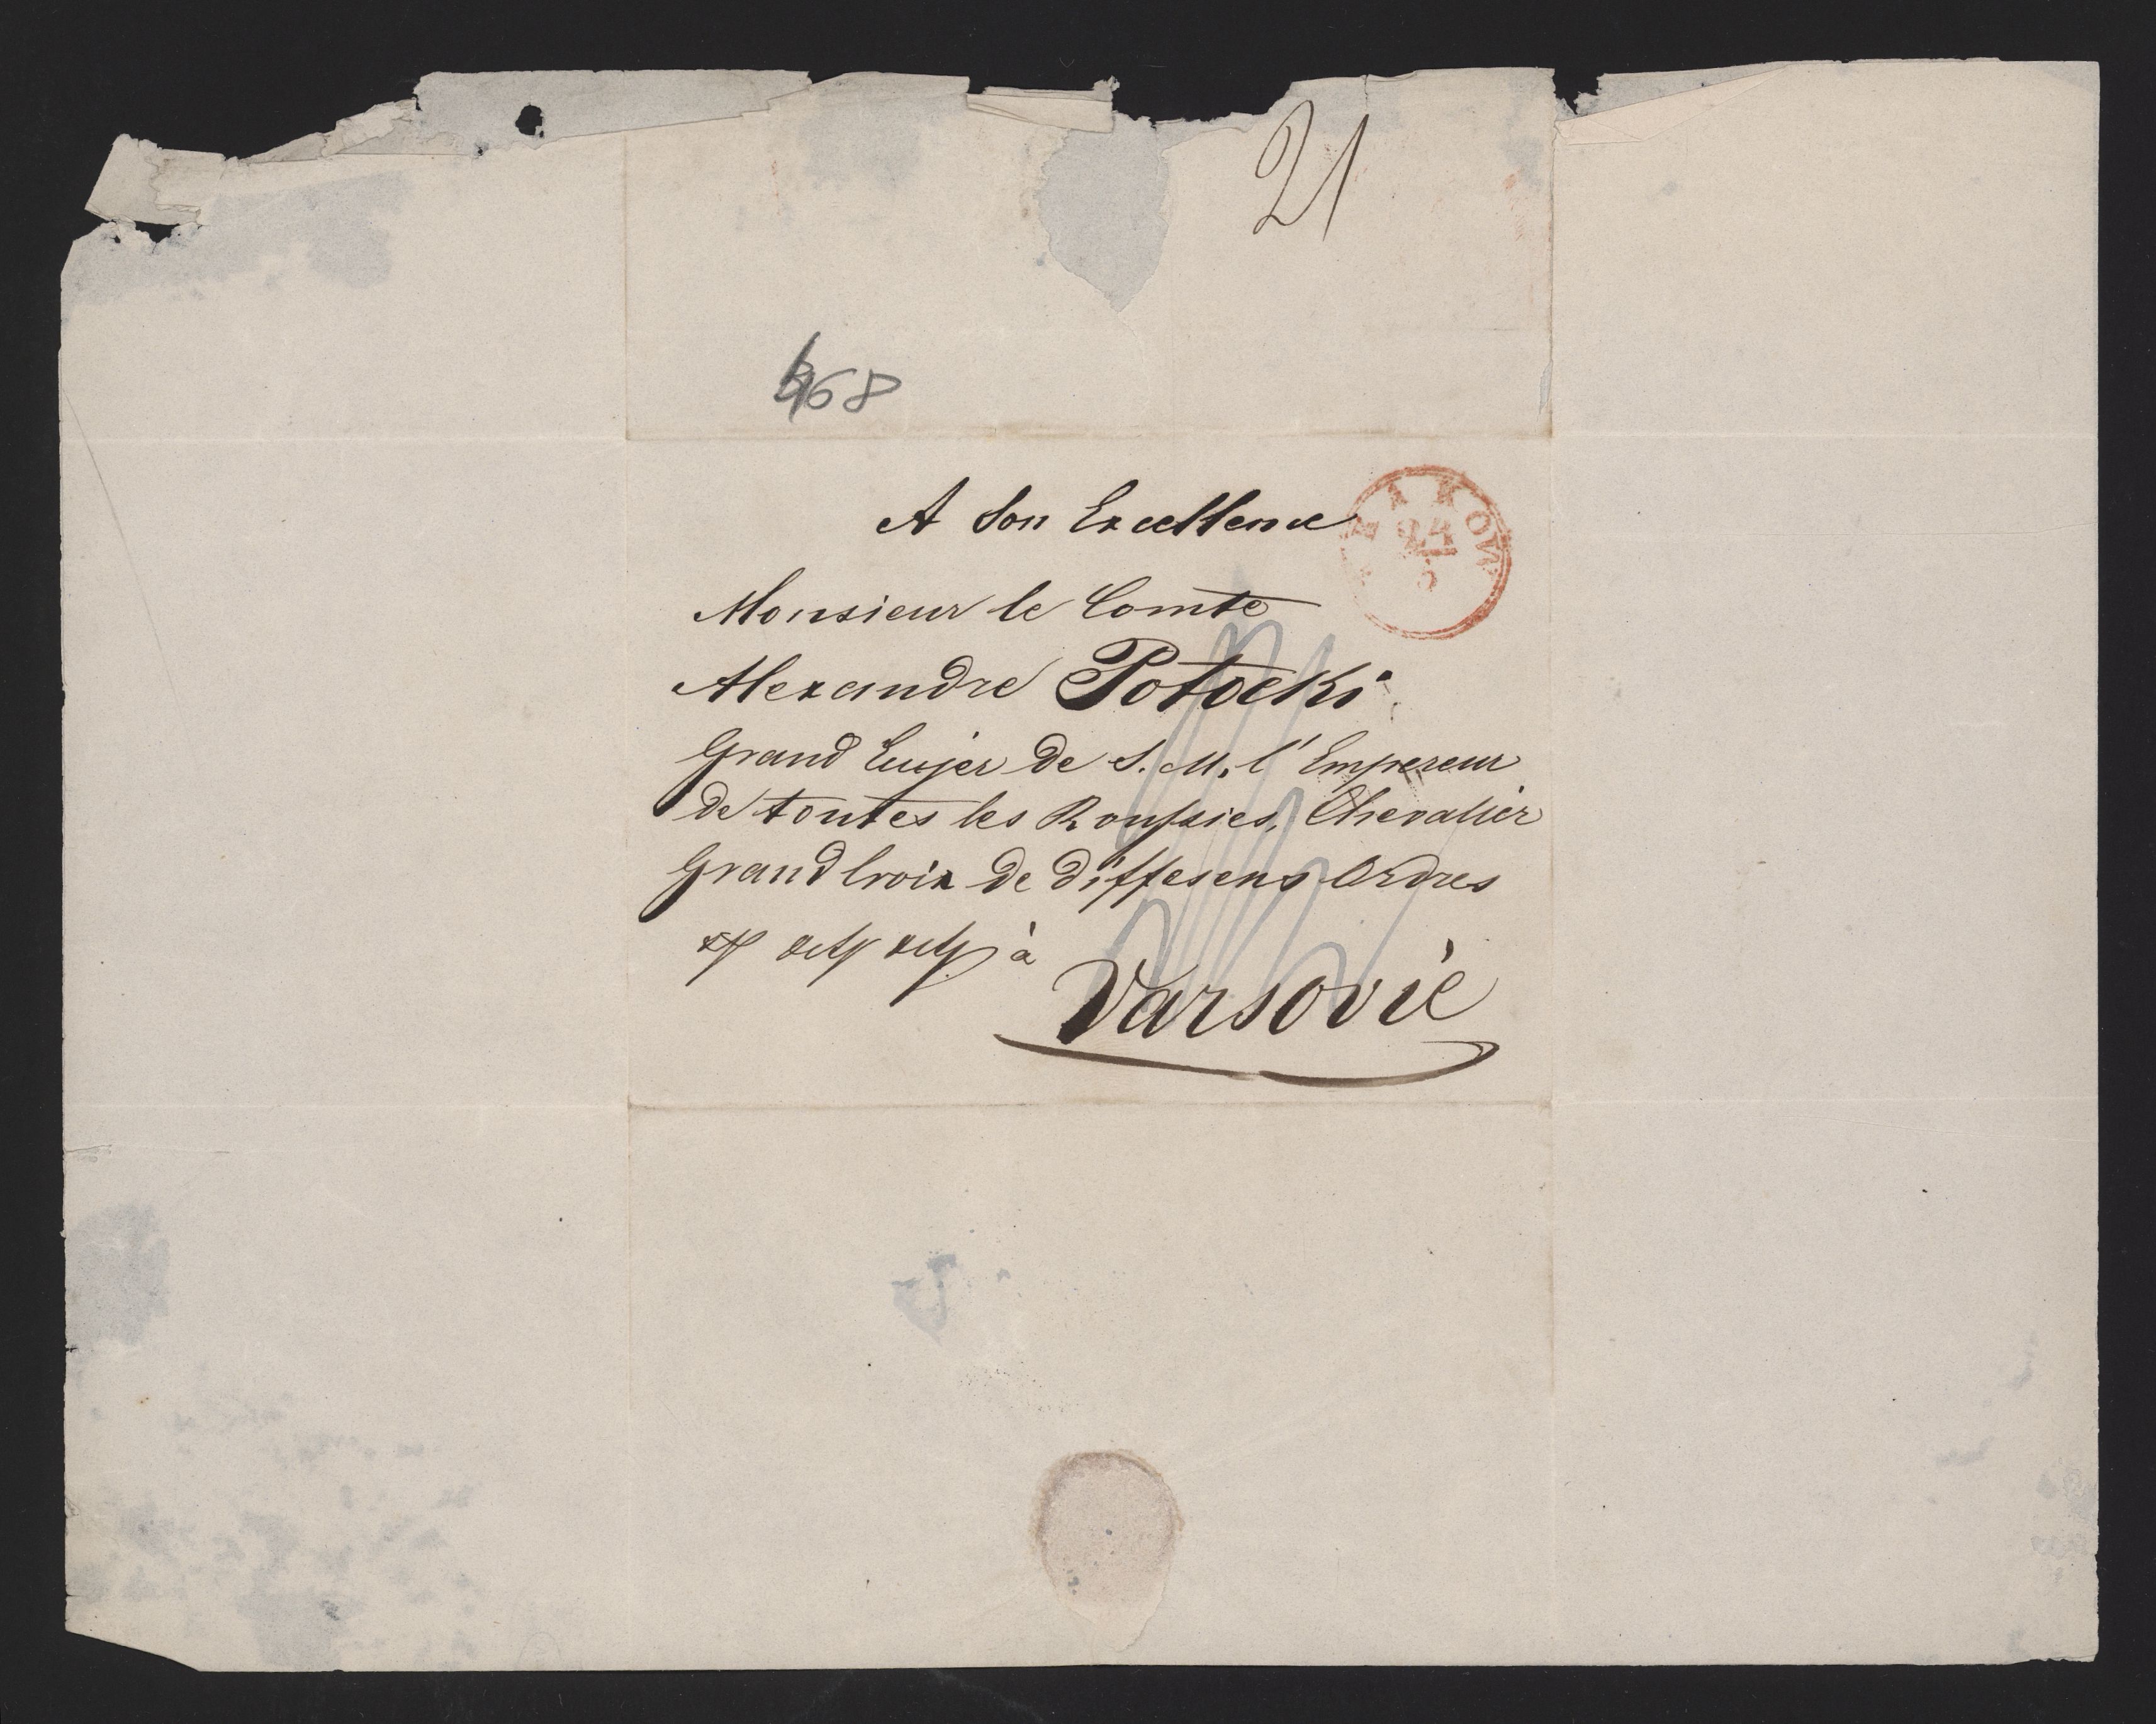 21
468
A Son Excellence
KRAKOW
24
5
Monsieur le Comte
Alexandre Potocki
Grand Ecujer de S. M. l'Empereur
de toutes les Roussies, Chevalier
Grand Croix de differens Ordres
à
Varsovie